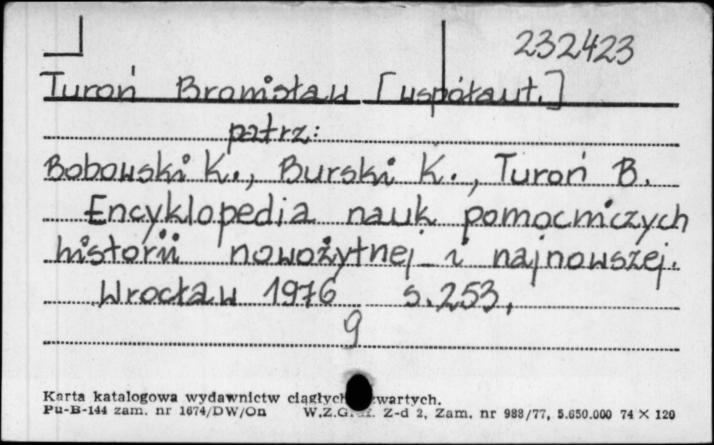 232423
Turoń Bronisław [współaut.]
patrz:
Bobowski K., Burski K., Turoń B.
Encyklopedia nauk pomocniczych
historii nowożytnej i najnowszej.
Wrocław 1976 s.253,
9
Karta katalogowa wydawnictw ciągłych zwartych.
Pu-B-144 zam. nr 1674/DW/On W.Z.G. Z-d 2, Zam. nr 988/77, 5.650.000 74 × 120